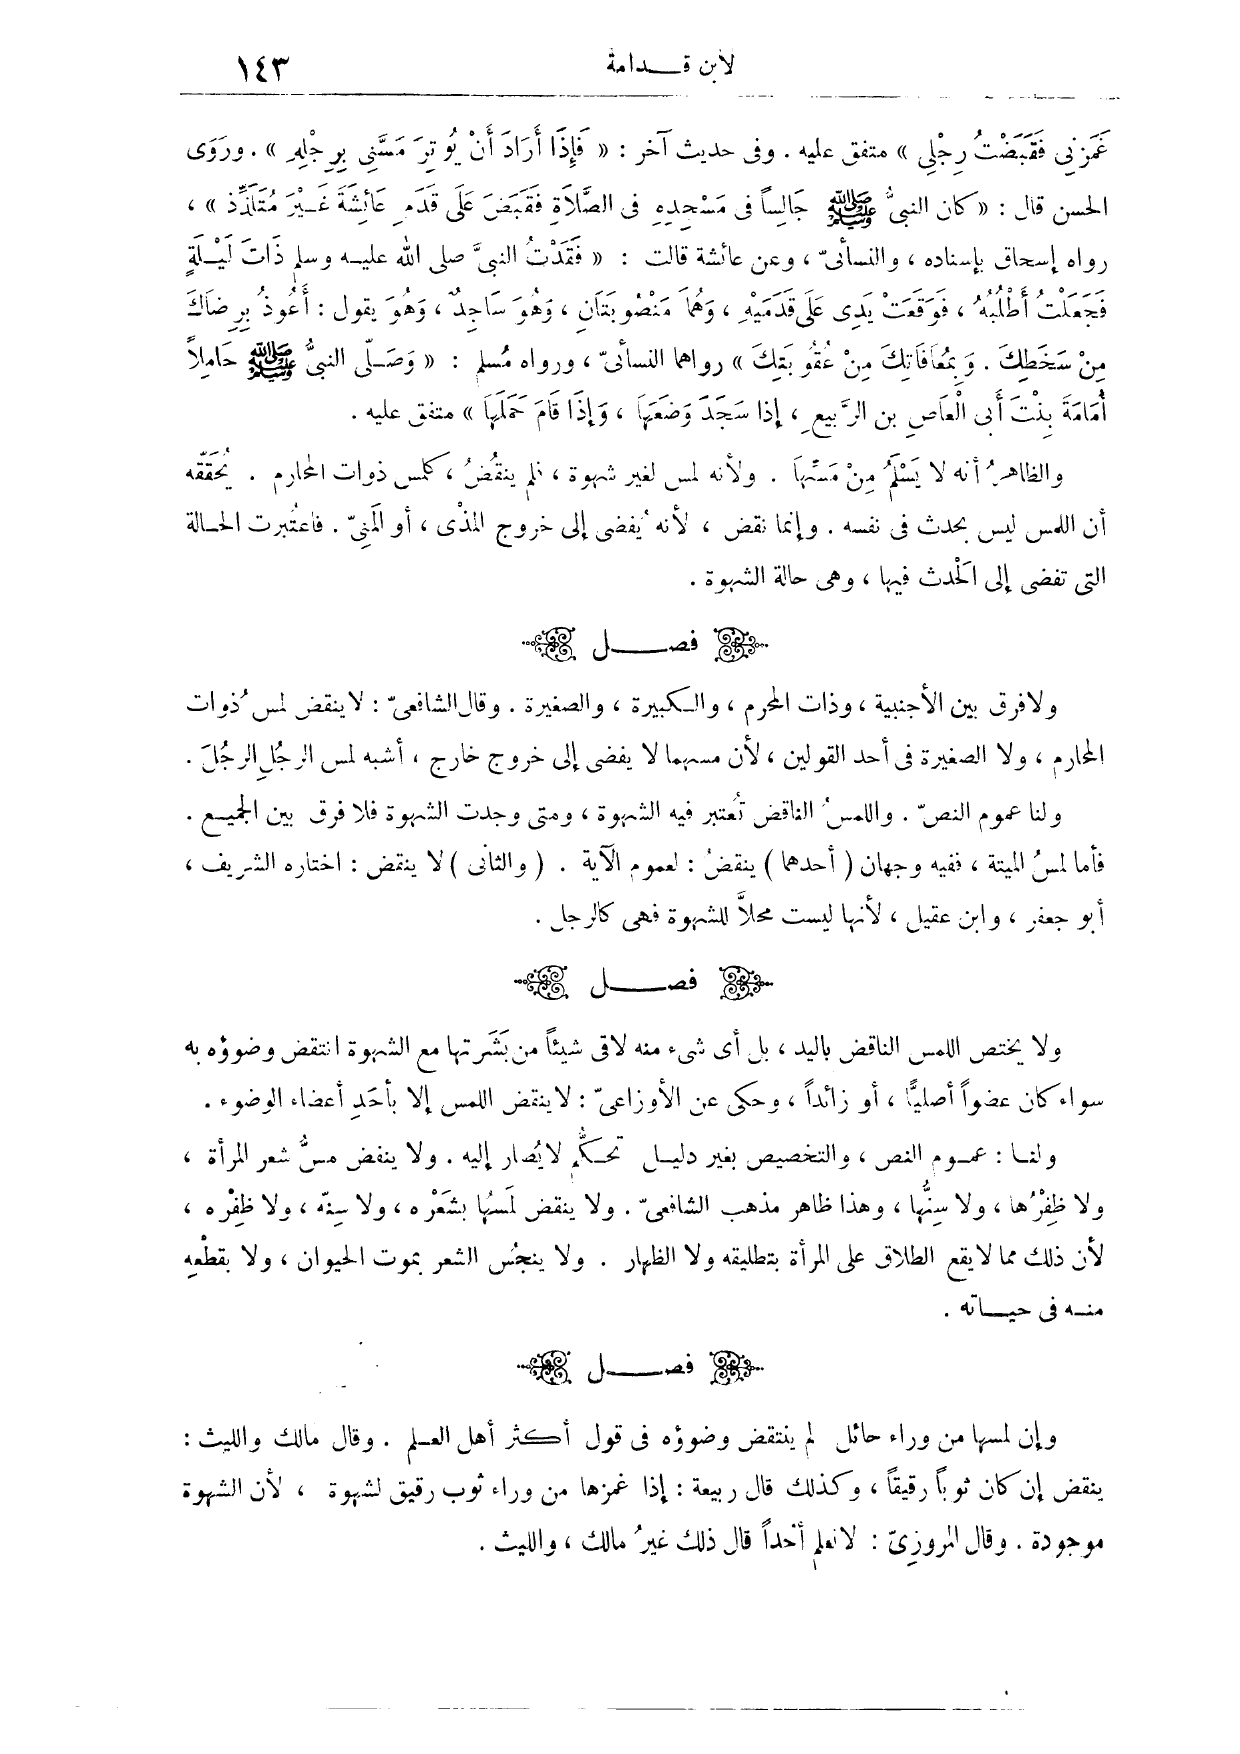 لابن قـــدامة ١٤٣
غَمَزَنِي فَقَبَضْتُ رِجْلِي » متفق عليه . وفى حديث آخر : « فَإِذَا أَرَادَ أَنْ يُوتِرَ مَسَّنِي بِرِجْلِهِ » . ورَوَى
الحسن قال : « كان النبيُّ ﷺ جَالِساً فى مَسْجِدِهِ فى الصَّلَاةِ فَقَبَضَ عَلَى قَدَمِ عَائِشَةَ غَـيْرَ مُتَلَذِّذ » ،
رواه إسحاق بإسناده ، والنسأئىّ ، وعن عائشة قالت : « فَقَدْتُ النبىَّ صلى الله عليـه وسلم ذَاتَ لَيْـلَةٍ
فَجَعَلْتُ أَطْلُبُهُ ، فَوَقَعَتْ يَدِى عَلَى قَدَمَيْهِ ، وَهُمَا مَنْصُوبَتَانِ ، وَهُوَ سَاجِدٌ ، وَهُوَ يقول : أَعُوذُ بِرِضَاكَ
مِنْ سَخَطِكَ . وَبِمُعَافَاتِكَ مِنْ عُقُوبَتِكَ » رواهما النسأئىّ ، ورواه مُسلم : « وَصَلّى النبىُّ ﷺ حَامِلاً
أُمَامَةَ بِنْتَ أَبِى الْعَاصِ بن الرَّبيعِ ، إذا سَجَدَ وَضَعَهَا ، وَإِذَا قَامَ حَمَلَهَا » متفق عليه .
والظاهرُ أنه لا يَسْلَمُ مِنْ مَسِّهَا . ولأنه لمس لغير شهوة ، فلم ينقُضُ ، كلمس ذوات المحارم . يُحَقّقه
أن اللمس ليس بحدث فى نفسه . وإنما نقض ، لأنه يُفضى إلى خروج المذْى ، أو المَنِىّ . فاعتُبرت الحـالة
التى تفضى إلى الحَدث فيها ، وهى حالة الشهوة .
فصـــــل
ولافرق بين الأجنبية ، وذات المحرم ، والـكبيرة ، والصغيرة . وقال الشافعىّ : لاينقض لمس ذُوات
المحارم ، ولا الصغيرة فى أحد القولين ، لأن مسهما لا يفضى إلى خروج خارج ، أشبه لمس الرجُلِ الرجُلَ .
ولنا عموم النصّ . واللمسُ الناقض تُعتبر فيه الشهوة ، ومتى وجدت الشهوة فلا فرق بين الجميـع .
فأما لمسُ الميتة ، ففيه وجهان ( أحدهما ) ينقضُ : لعموم الآية . ( والثانى ) لا ينقض : اختاره الشريف ،
أبو جعفر ، وابن عقيل ، لأنها ليست محلاًّ للشهوة فهى كالرجل .
فصـــــل
ولا يختص اللمس الناقض باليد ، بل أى شىء منه لاقى شيئاً من بَشَرتها مع الشهوة انتقض وضوؤه به
سواء كان عضواً أصليًّا ، أو زائداً ، وحكى عن الأوزاعىّ : لاينقض اللمس إلا بأحَدِ أعضاء الوضوء .
ولنـا : عمـوم النص ، والتخصيص بغير دليـل تحـكُّم لايُصار إليه . ولا ينقض مسُّ شعر المرأة ،
ولا ظِفْرُها ، ولا سِنُّها ، وهذا ظاهر مذهب الشافعىّ . ولا ينقض لَمسُها بشَعْره ، ولا سِنّه ، ولا ظفِره ،
لأن ذلك مما لايقع الطلاق على المرأة بتطليقه ولا الظهار . ولا ينجُس الشعر بموت الحيوان ، ولا بقطْعِه
منـه فى حيـــاته .
فصـــــل
وإن لمسها من وراء حائل لم ينتقض وضوؤه فى قول أكـثر أهل العـلم . وقال مالك والليث :
ينقض إن كان ثوباً رقيقاً ، وكذلك قال ربيعة : إذا غمزها من وراء ثوب رقيق لشهوة ، لأن الشهوة
موجودة . وقال المروزِىّ : لانعلم أحداً قال ذلك غيرُ مالك ، والليث .